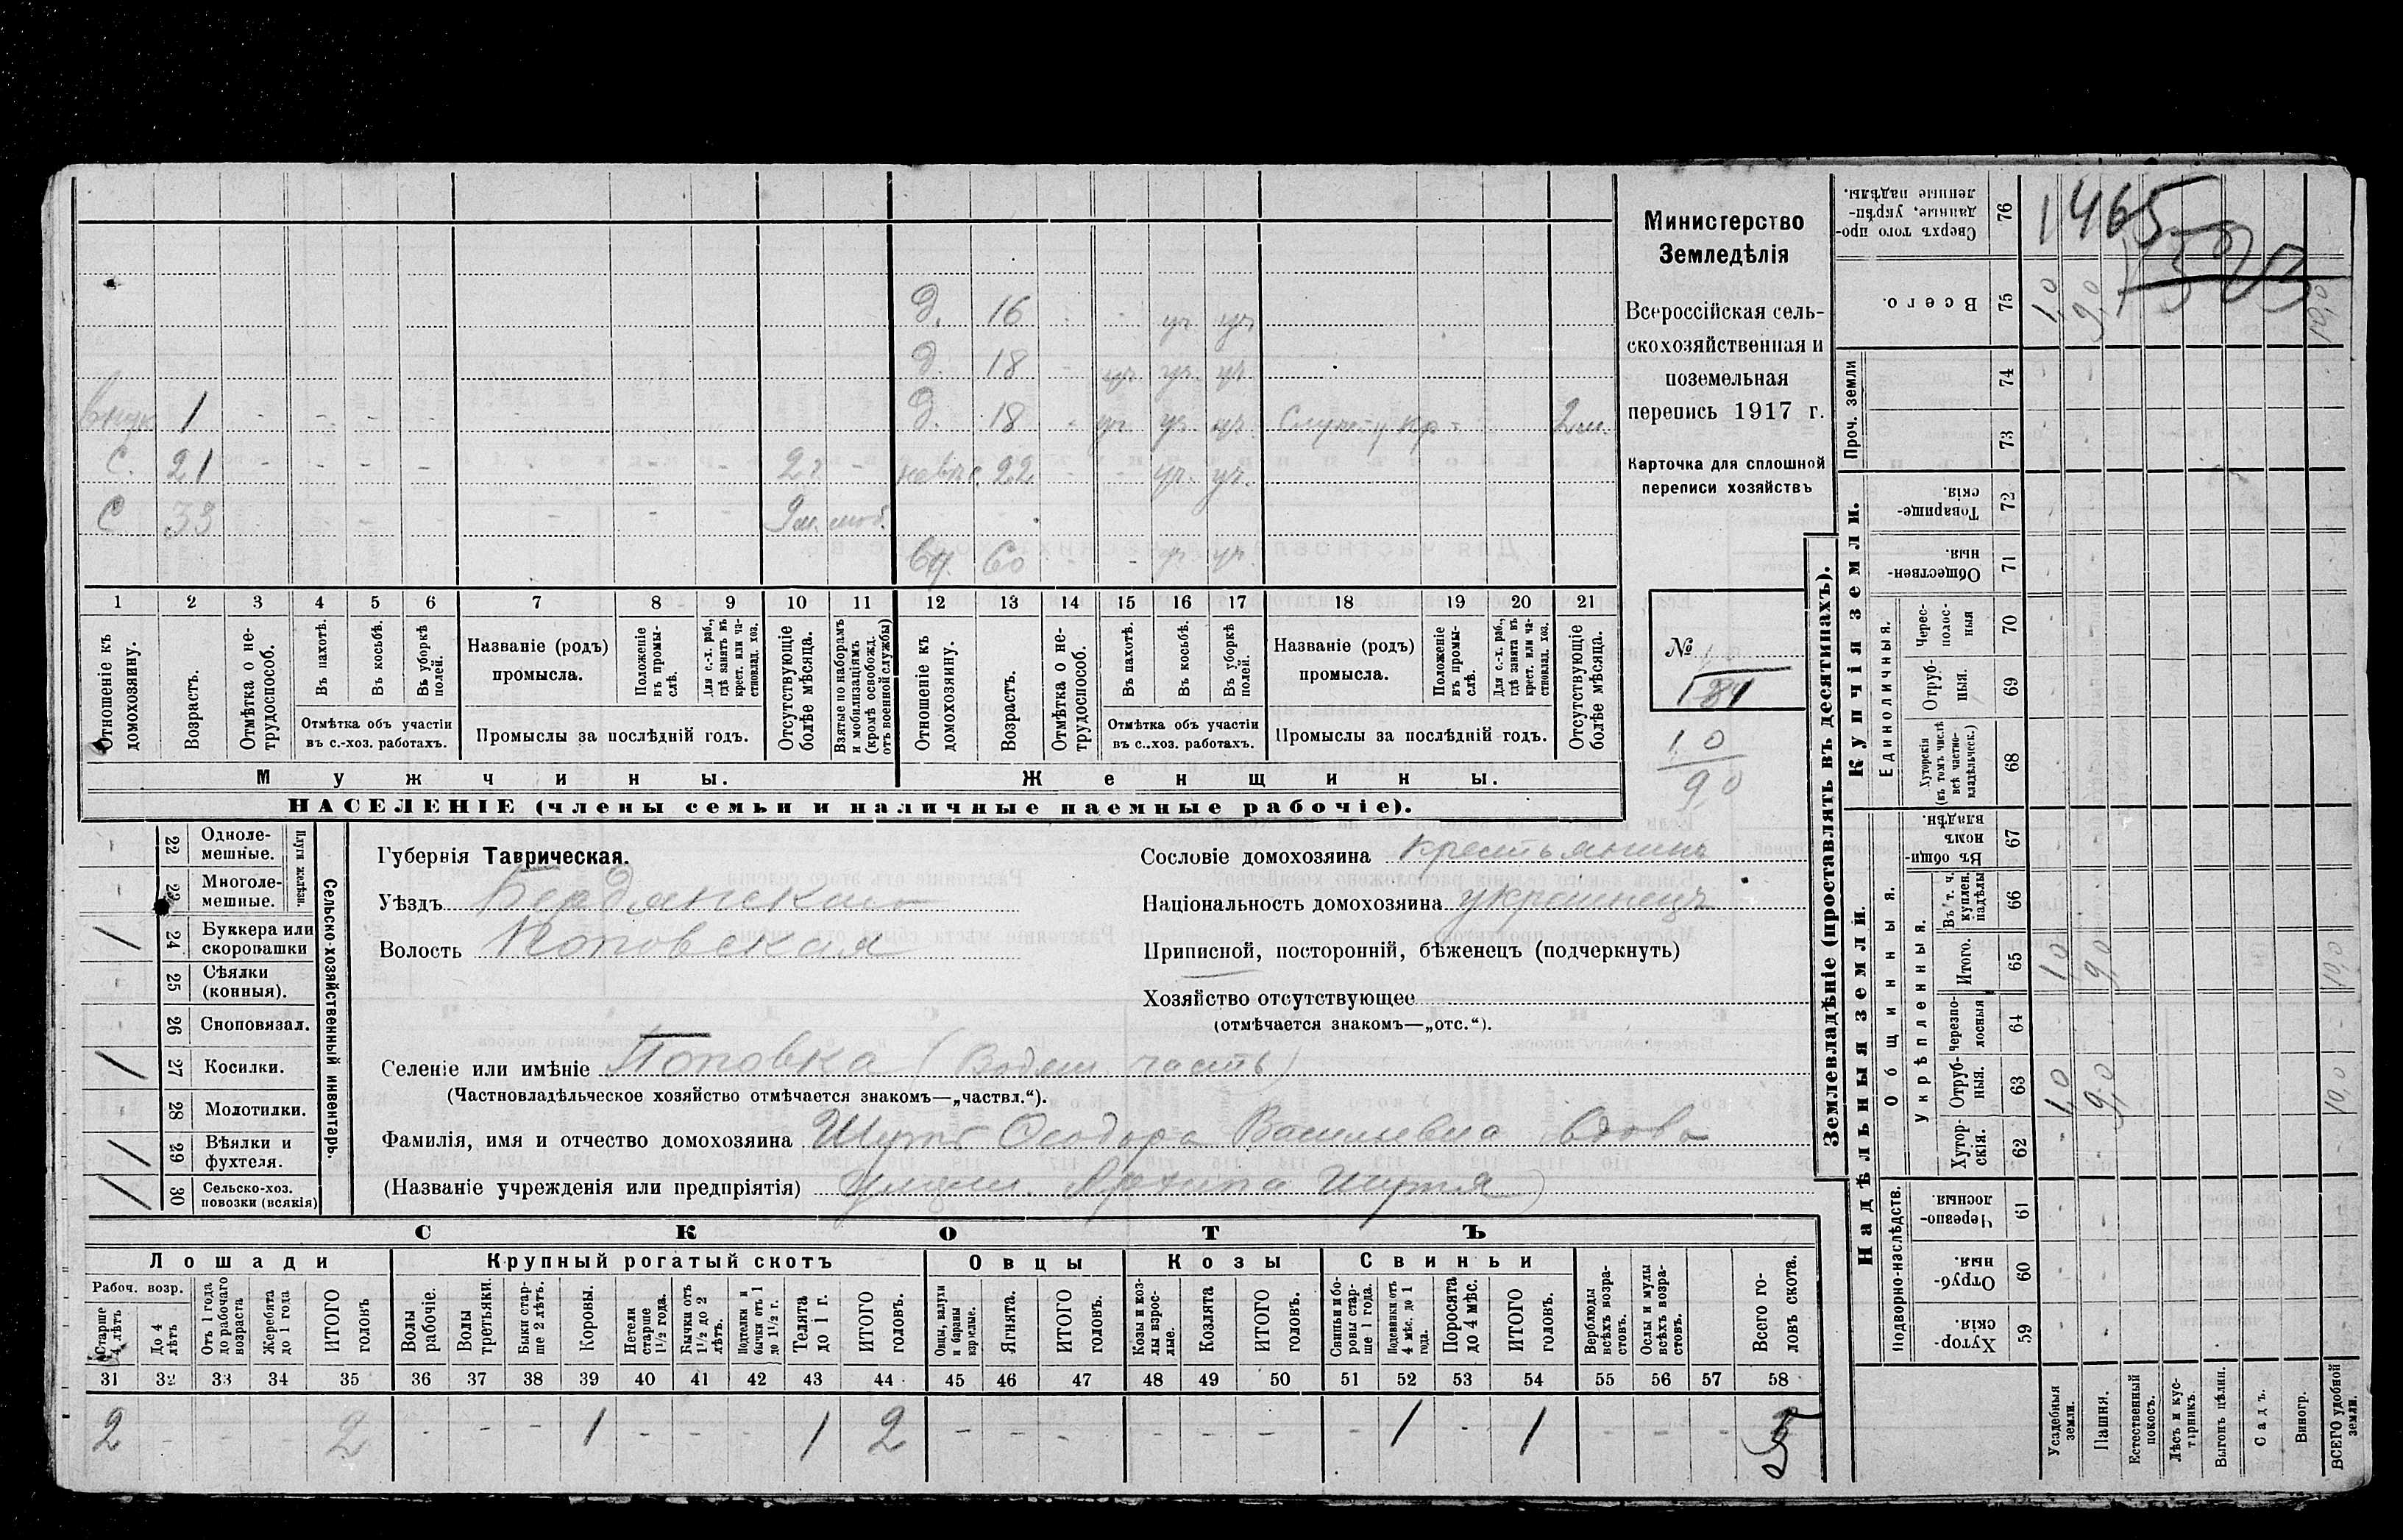 Министерство
Земледѣлія
Всероссійская сель-
скохозяйственная и
поземельная
перепись 1917 г.
Карточка для сплошной
переписи хозяйствъ
№
1465
д. 16 - - уч. уч.
д. 18 - уч. уч. уч.
внук 1 - - - - - - - д. 18 - уч. уч. уч. 2 м.
с. 21 - - - - - - - 2 г. - невѣс. 22 - - уч. уч.
с 33 - - моб.
60 - - уч. уч.
1 2 3 4 5 6 7 8 9 10 11 12 13 14 15 16 17 18 19 20 21
Отношеніе къ домохозяину.
Возрастъ.
Отмѣтка о не-трудоспособ.
Въ пахотѣ.
Въ косьбѣ.
Въ уборкѣ полей.
Отмѣтка объ участіи
въ с.-хоз. работахъ.
Названіе (родъ)
промысла.
Положеніе въ промы-слѣ.
Для с.-х. раб., гдѣ занятъ въ крест. или ча-стновлад. хоз.
Промыслы за послѣдній годъ.
Отсутствующіе болѣе мѣсяца.
Взятые по наборамъ и мобилизаціямъ (кромѣ освобожд. отъ военной службы)
Отношеніе къ домохозяину.
Возрастъ.
Отмѣтка о не-трудоспособ.
Въ пахотѣ.
Въ косьбѣ.
Въ уборкѣ полей.
Отмѣтка объ участіи
въ с.-хоз. работахъ.
Названіе (родъ)
промысла.
Положеніе въ промы-слѣ.
Для с.-х. раб., гдѣ занята въ крест. или ча-стновлад. хоз.
Промыслы за послѣдній годъ.
Отсутствующіе болѣе мѣсяца.
Мужчины. Женщины.
НАСЕЛЕНІЕ (члены семьи и наличные наемные рабочіе).
1,0
9,0
Сельско-хозяйственный инвентарь.
Плуги желѣзн.
- 22 Одноле-мешные.
- 23 Многоле-мешные.
/ 24 Буккера или скоропашки
- 25 Сѣялки (конныя).
- 26 Сноповязал.
/ 27 Косилки.
- 28 Молотилки.
/ 29 Вѣялки и фухтеля.
/ 30 Сельско-хоз. повозки (всякія)
Губернія Таврическая.
Уѣздъ Бердянскій
Волость Поповская
Сословіе домохозяина крестьянинъ
Національность домохозяина украинецъ
Приписной, посторонній, бѣженецъ (подчеркнуть)
Хозяйство отсутствующее
(отмѣчается знакомъ—„отс.“).
Селеніе или имѣніе Поповка ( часть)
(Частновладѣльческое хозяйство отмѣчается знакомъ—„частвл.“).
Фамилія, имя и отчество домохозяина Шутъ Ѳеодора Васильевна вдова
(Названіе учрежденія или предпріятія) Архипа Шутя)
СКОТЪ
Лошади Крупный рогатый скотъ Овцы Козы Свиньи
Рабоч. возр.
Старше 4 лѣтъ
До 4 лѣтъ
Отъ 1 года до рабочаго возраста
Жеребята до 1 года
ИТОГО головъ
Волы рабочіе.
Волы третьяки.
Быки стар-ше 2 лѣтъ.
Коровы.
Нетели старше 1½ года.
Бычки отъ 1½ до 2 лѣтъ.
Подтелки и бычки отъ 1 до 1½ г.
Телята до 1 г.
ИТОГО головъ.
Овцы, валухи и бараны взрослые.
Ягнята.
ИТОГО головъ.
Козы и коз-лы взрос-лые.
Козлята
ИТОГО головъ.
Свиньи и бо-ровы стар-ше 1 года.
Подсвинки отъ 4 мѣс. до 1 года.
Поросята до 4 мѣс.
ИТОГО головъ.
Верблюды всѣхъ возра-стовъ.
Ослы и мулы всѣхъ возра-стовъ.
Всего го-ловъ скота.
31 32 33 34 35 36 37 38 39 40 41 42 43 44 45 46 47 48 49 50 51 52 53 54 55 56 57 58
2 - - - 2 - - - 1 - - - 1 2 - - - - - - - 1 - 1 - - - 5
Землевладѣніе (проставлять въ десятинахъ).
Надѣльныя земли. Купчія земли. Проч. земли
Подворно-наслѣдств. Общинныя. Укрѣпленныя. Единоличныя.
59 Хутор-скія.
60 Отруб-ныя.
61 Черезпо-лосныя.
62 Хутор-скія.
63 Отруб-ныя. 1,0 9,0 10,0
64 Черезпо-лосныя
65 Итого. 1,0 9,0 10,0
66 Въ т. ч. куплен. надѣлы
67 Въ общин-номъ владѣн.
68 Хуторскія (въ томъ числѣ всѣ частно-владѣльчес.)
69 Отруб-ныя.
70 Черес-полос-ныя
71 Обществен-ныя.
72 Товарище-скія.
73
74
75 Всего. 1,0 9,0 10,0
76 Сверхъ того про-данные, укрѣп-ленные надѣлы.
Усадебныя земли.
Пашня.
Естественный покосъ.
Лѣсъ и кус-тарникъ.
Выгонъ цѣлин.
Садъ.
Виногр.
ВСЕГО удобной земли.